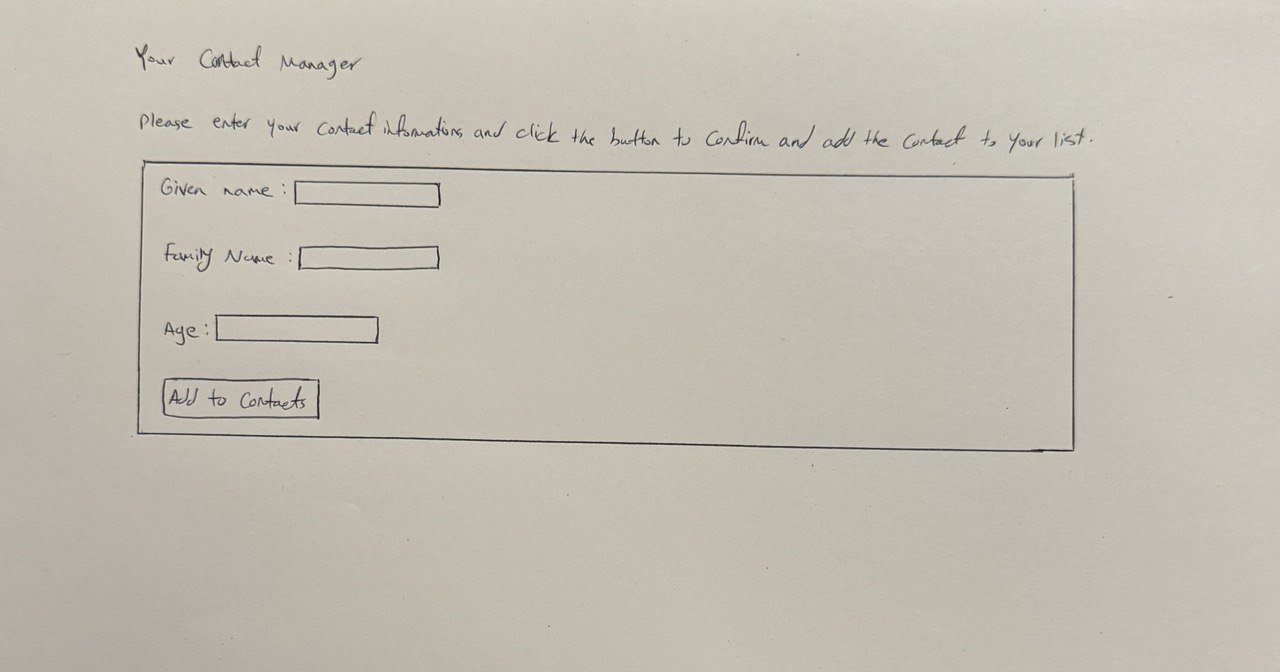 Your Contact Manager
Please enter your contact informations and click the button to confirm and add the contact to your list.
Given name :
Family Name :
Age :
Add to Contacts